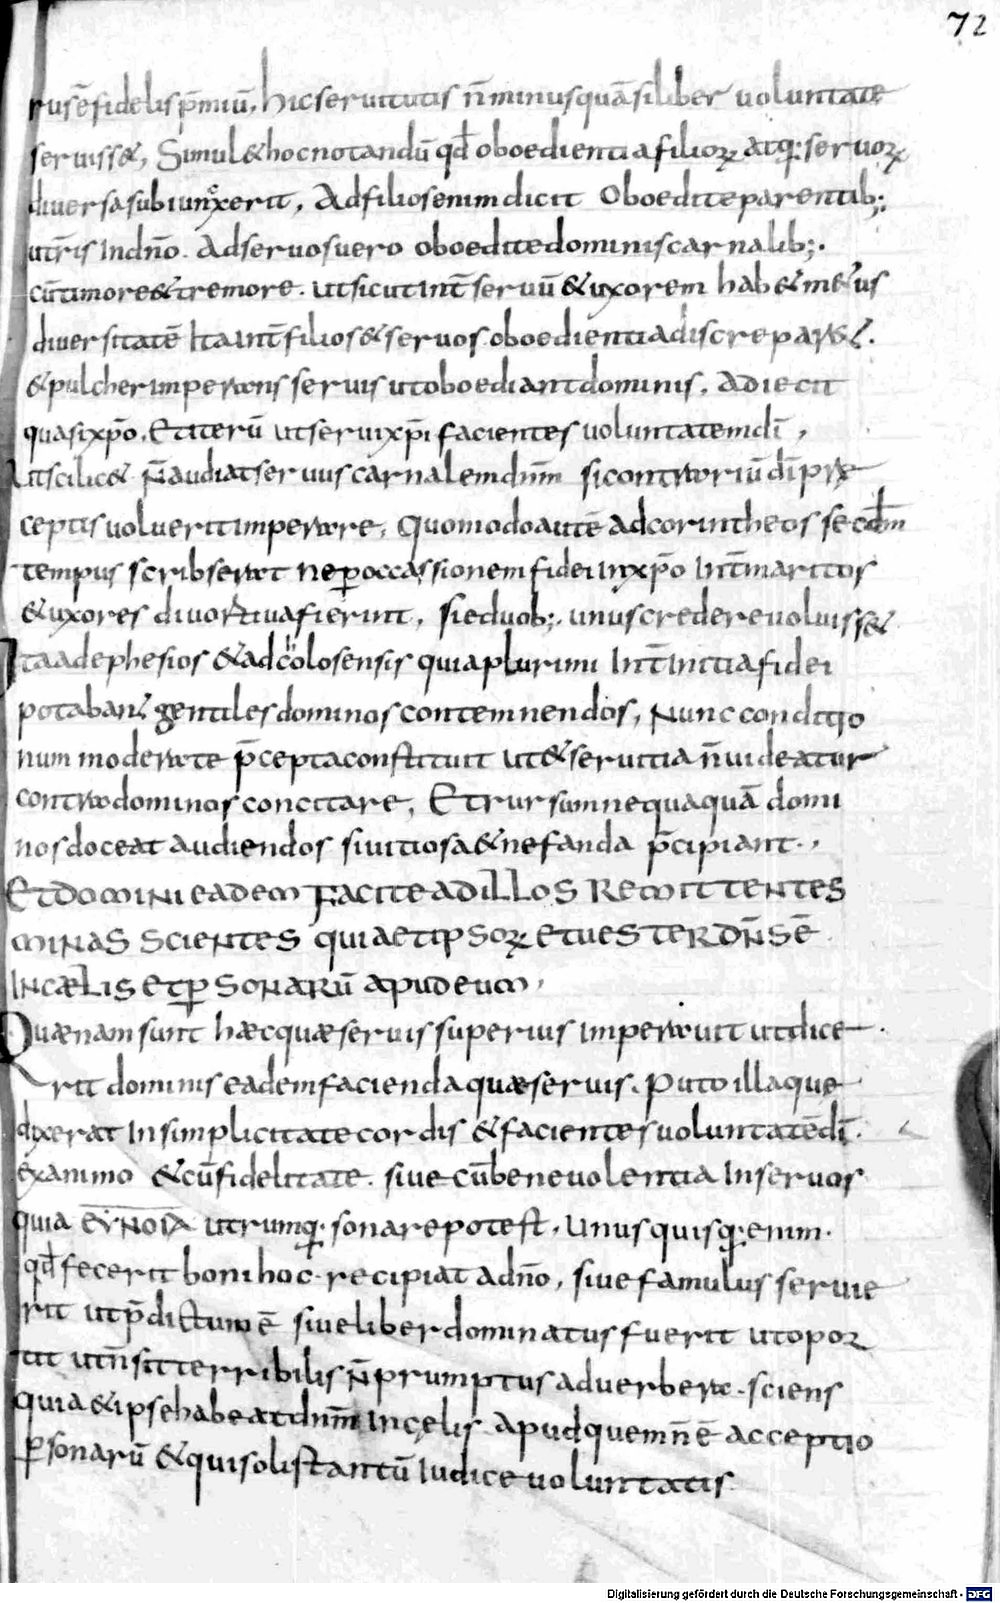 72
rus ē fidelis p̄miū, hic seruitutis n̄ minus quā si liber uoluntate
seruiss&, Simul & hoc notandū qđ oboedientia filioꝝ atq; seruoꝝ
diuersa subiunxerit, Ad filios enim dicit Oboedite parentib;
ur̄is In dn̄o. Ad seruos uero oboedite dominis carnalib;.
cū timore & tremore. ut sicut Int̄ seruū & uxorem hab&
diuersitatē Ita Int̄ filios & seruos oboedientia discrepar&.
& pulcher imperans seruis ut oboediant dominis, adiecit
quasi xp̄o, Et iterū ut serui xp̄i facientes uoluntatem dī,
Ut scilic& n̄ audiat seruus carnalem dn̄m si contrariū dī præ
ceptis uoluerit imperare, Quomodo autē ad corintheos secdm
tempus scribserat ne ꝑ occassionem fidei In xp̄o Int̄ maritos
& uxores diuortia fierent, si e duob; unus credere uoluiss&
Ita ad ephesios & ad colosensis quia plurimi Int̄ Initia fidei
potabant gentiles dominos contemnendos, Nunc conditio
num moderate p̄cepta constituit ut & seruitia n̄ uideatur
contra dominos concitare, Et rursum nequaquā domi
nos doceat audiendos si uitiosa & nefanda p̄cipiant.,
Et domini eadem facite ad illos remittentes
minas scientes quia et ipsoꝝ et uester dn̄s ē
In cælis et ꝑsonarū apud eum,
Quænam sunt hæc quæ seruis superius imperauit ut dice
rit dominis eadem facienda quæ seruis. Puto illa que
dixerat In simplicitate cordis & facientes uoluntatē dī.
ex animo & cū fidelitate. siue cū beneuolentia In seruos
quia EYNOIA utrumq; sonare potest, Unusquisq; enim.
qđ fecerit boni hoc recipiat a dn̄o, siue famulus seruie
rit ut p̄dictum ē siue liber dominatus fuerit ut opor
tit ut n̄ sit terribilis n̄ prumptus ad uerbera. sciens
quia & ipse habeat dn̄m In cęlis apud quem n̄ ē acceptio
ꝑsonarū & qui solis tantū Iudice uoluntatis
Digitalisierung gefördert durch die Deutsche Forschungsgemeinschaft - DFG